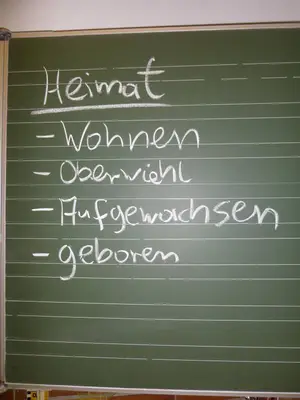 Heimat
- Wohnen
- Oberwiehl
- Aufgewachsen
- geboren